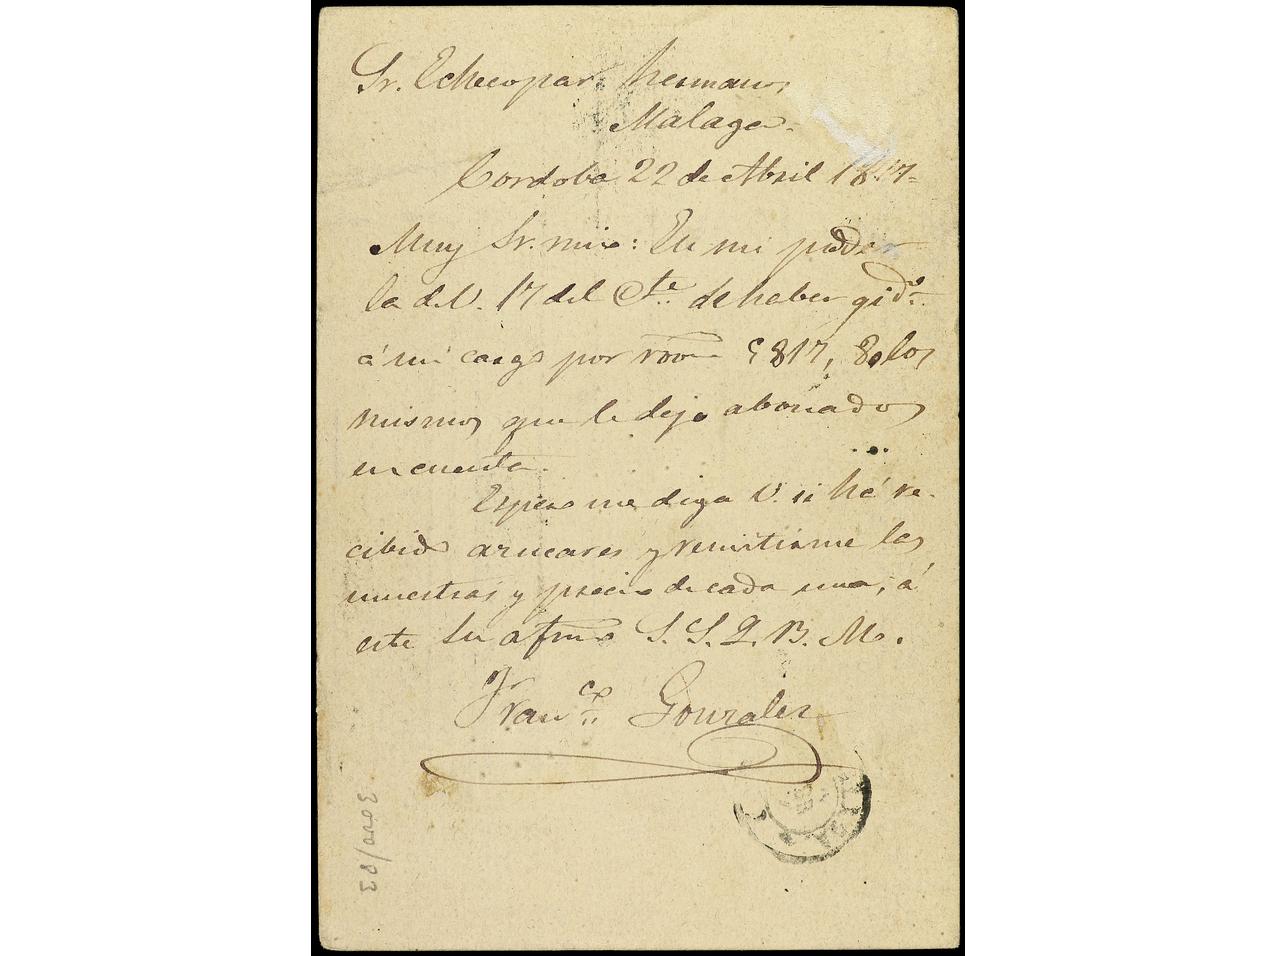 Sr. Echecopar hermanos
Malaga.
Cordoba 22 de Abril 1877=
Muy Sr. mio: En mi poder
la de V. 17 del Cte. de haber gido.
á mi cargo por rvon 5817, 80 los
mismos que le dejo abonados
en cuenta.
Espero me diga V. si há re-
cibido azucares y remitirme las
muestras y precio de cada una, á
este Su afmo S. S. Q. B. M.
Franco. Gonzalez
3ero/83